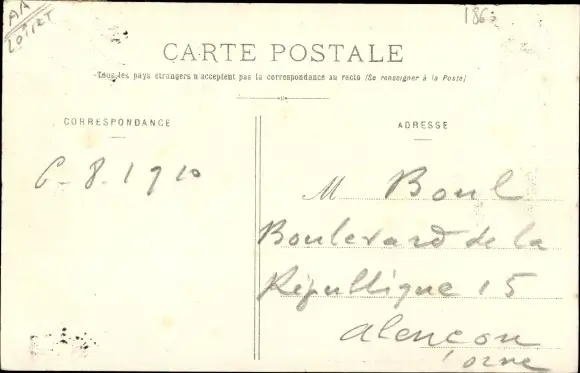 AA
LOIRET
186
CARTE POSTALE
Tous les pays étrangers n'acceptent pas la correspondance au recto (Se renseigner à la Poste)
CORRESPONDANCE
ADRESSE
6-8.1910
M Boul
Boulevard de la
République 15
Alençon
Orne